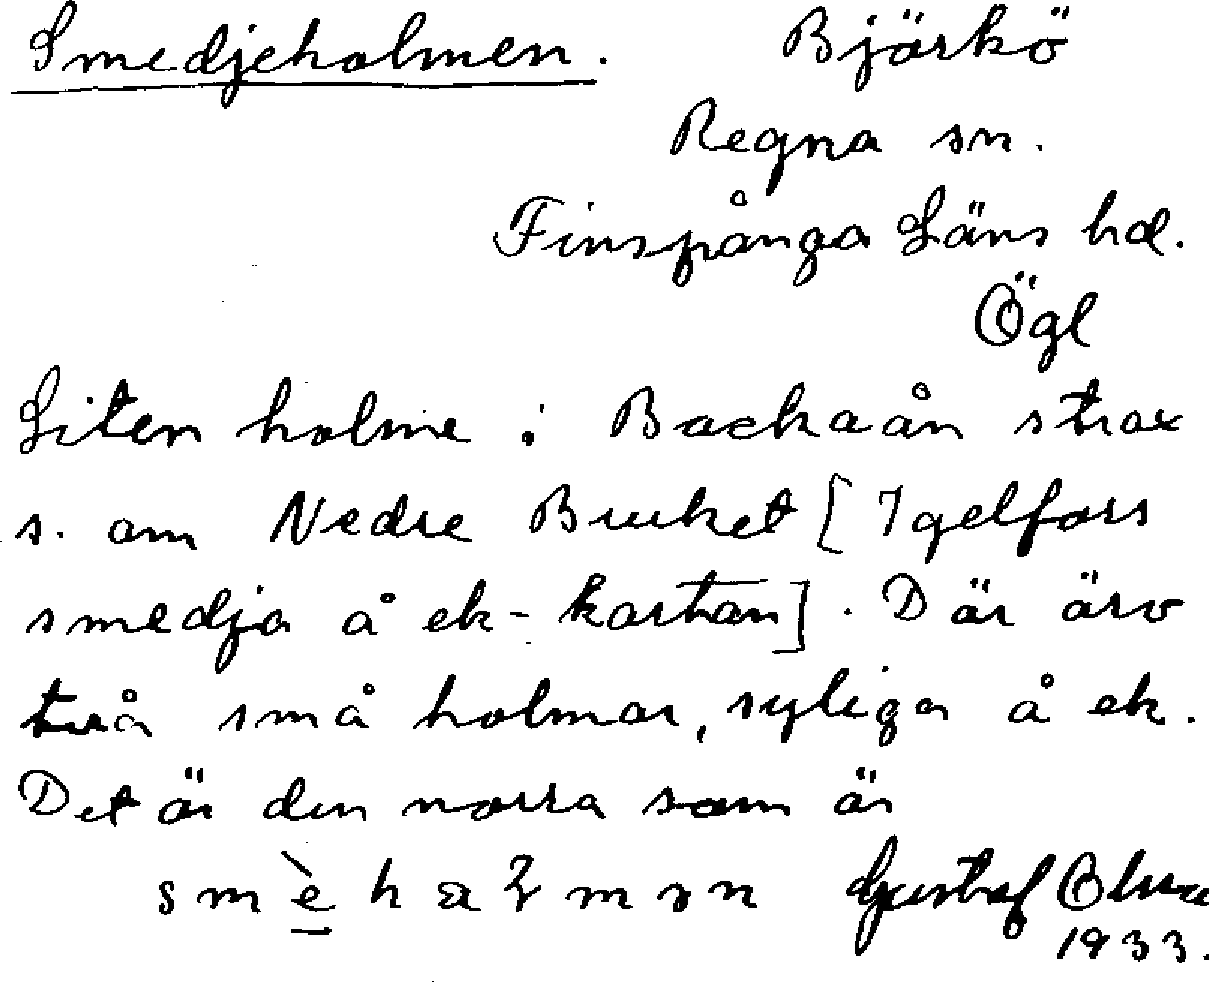 Smedjeholmen. Björkö
Regna sn.
Finspånga Läns hd.
Ögl
Liten holme i Backaån strax
s. om Nedre Bruket [Igelfors
smedja å ek-kartan]. Där äro
två små holmar, synliga å ek.
Det är den norra som är
Gustaf
1933.